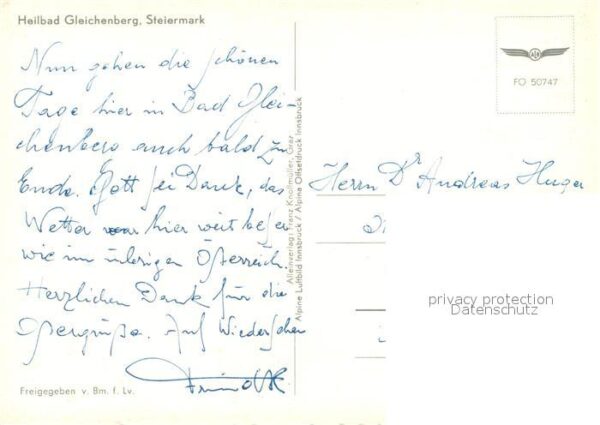 Heilbad Gleichenberg, Steiermark
Nun gehen die schönen
Tage hier in Bad Glei-
chenberg auch bald zu
Ende. Gott sei Dank, das
Wetter war hier weit besser
wie im übrigen Österreich.
Herzlichen Dank für die
Ostergrüße. Auf Wiedersehen
Freigegeben v. Bm. f. Lv.
Alleinverlag: Franz Knollmüller, Graz
Alpine Luftbild Innsbruck / Alpine Offsetdruck Innsbruck
FO 50747
Herrn Dr Andreas Huger
privacy protection
Datenschutz